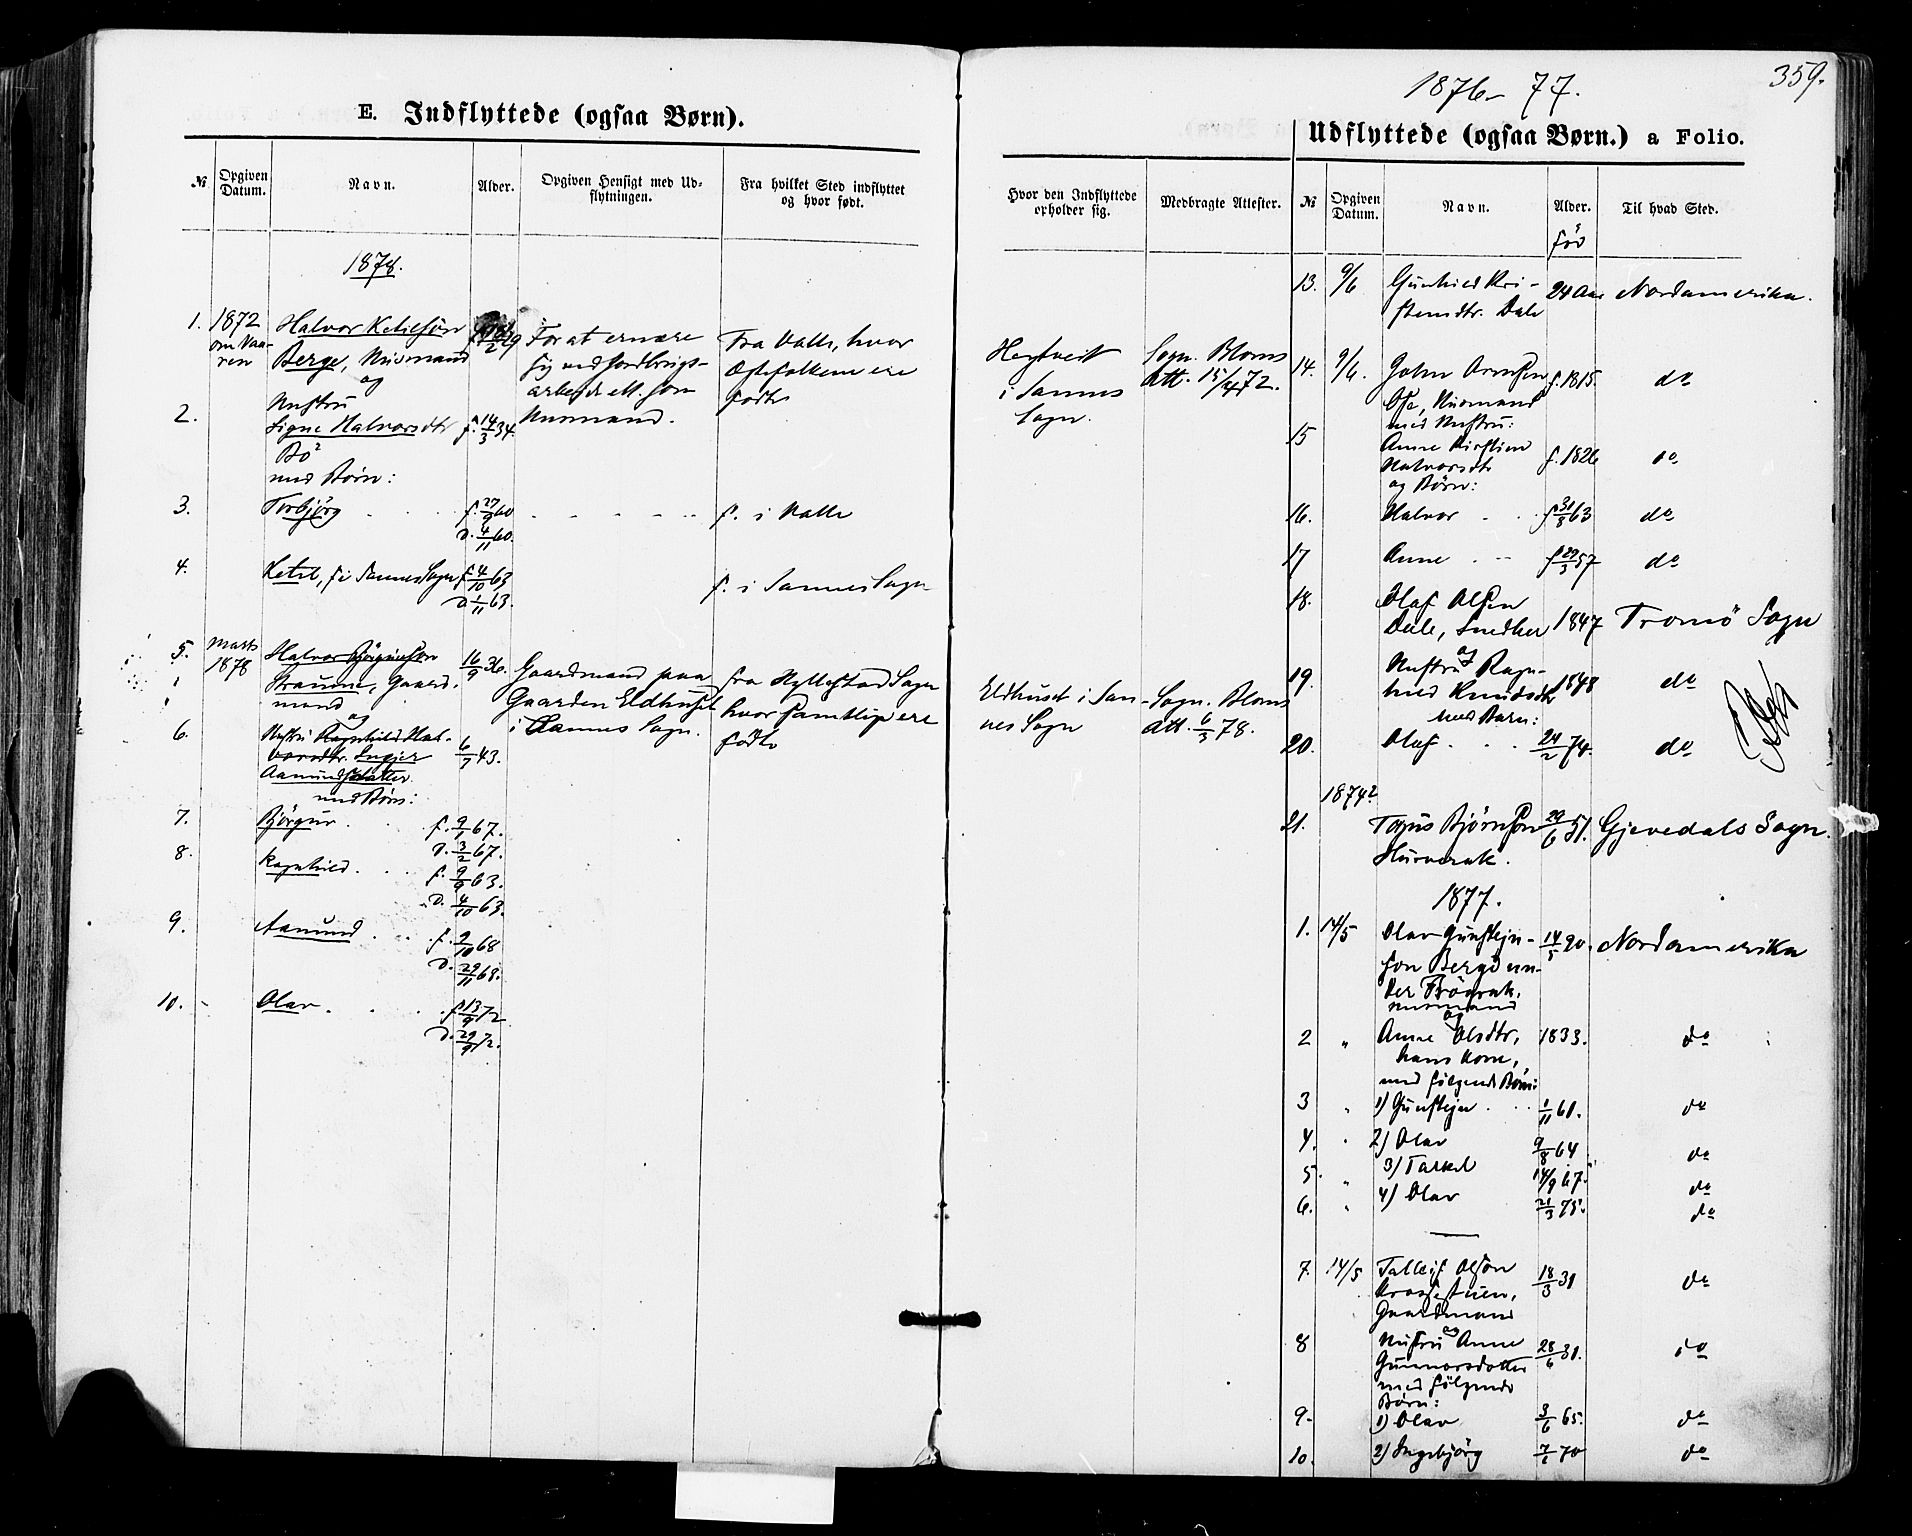 359.
1876 - 77.
E. Indflyttede (ogsaa Børn).
№
Opgiven Datum.
Navn.
Alder.
Opgiven Hensigt med Udflytningen.
Fra hvilket Sted indflyttet og hvor født.
Hvor den Indflyttede opholder sig.
Medbragte Attester.
1878.
1. 1872 Halvor Ketilsøn For at ernære Fra Valle, hvor Sogn. Bloms
Berge, Husmand sig ved Ægtefolkene ere i Sannes Att. 15/4 72.
og arbeide fødte Sogn.
2. Hustru Husmand.
Signe Halvorsdtr f. 14/3 34.
Bö
med Börn:
3. Torbjörg f. 27/9 60 f. i Valle
D. 4/11 60.
4. Ketil, f. i Sannes Sogn f. 4/10 63 f. i Sannes Sogn
D. 1/11 63.
5. Marts Halvor 16/9 36. Gaardmand paa fra Hyllestad Sogn Eldhuset i San- Sogn. Bloms
1878 Straume, Gaard- Gaarden Eldhuset hvor samtlige ere nes Sogn Att. 6/3 78.
mand i Sannes Sogn. fødte
og
6. Hustru Ragnhild Hal- 6/7 43.
vorsdtr. Ingjer
Aamundsdatter
med Börn:
7. Björgur f. 9/1 67.
D. 3/2 67.
8. Ragnhild f. 9/9 63.
D. 4/10 63.
9. Aamund f. 9/10 68
D. 29/11 68.
10. Olav f. 13/9 72
D. 29/9 72.
Udflyttede (ogsaa Børn.) a Folio.
№
Opgiven Datum.
Navn.
Alder.
Til hvad Sted.
föd
13. 9/6 Gunhild Kri- 24 Aar Nordamerika.
stensdtr. Dale
14. 9/6. f. 1815. do
Ose, Husmand
med Hustru:
15 Anne Kirstine f. 1826 do
Halvorsdtr
og Börn:
16. Halvor f. 31/8 63 do
17 Anne f. 29/3 57 do
18. Olaf Olsen 1847 Tromö Sogn
Dale, Snedker
og
19. Hustru Ragn- 1848 do
hild Knudsdtr
med Barn:
20. Olaf 24/2 74. do
1874?
21. Björnsson 29/6 51. Gjevedals Sogn.
1877.
1. 14/5 Olav Gunstejn- 14/5 20. Nordamerika
son Berge un-
der
Husmand
og
2 „ Anne Olsdtr, 1833. do
hans Kone,
med følgende Börn:
3 „ 1) Gunstejn 1/11 61. do
4. „ 2) Olav 9/8 64 do
5. „ 3) Tarkel 14/9 67. do
6. „ 4) Olav 21/3 75. do
7. 14/5 Talleif Olson 18/3 31 do
Gaardmand
og
8 Hustru Anne 28/6 31. do
Gunnarsdatter
med følgende
Börn:
9. 1) Olav 3/6 65. do
10. 2) Ingebjörg 7/1 70 do